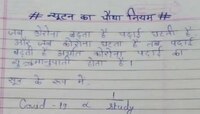 # न्यूटन का चौथा नियम #
जब कोरोना बढ़ता है पढ़ाई घटती है
और जब कोरोना घटता है तब पढ़ाई
बढ़ती है अर्थात कोरोना पढ़ाई का
व्युत्क्रमानुपाती होता है।
सूत्र के रूप में
Covid-19 ∝ 1/study